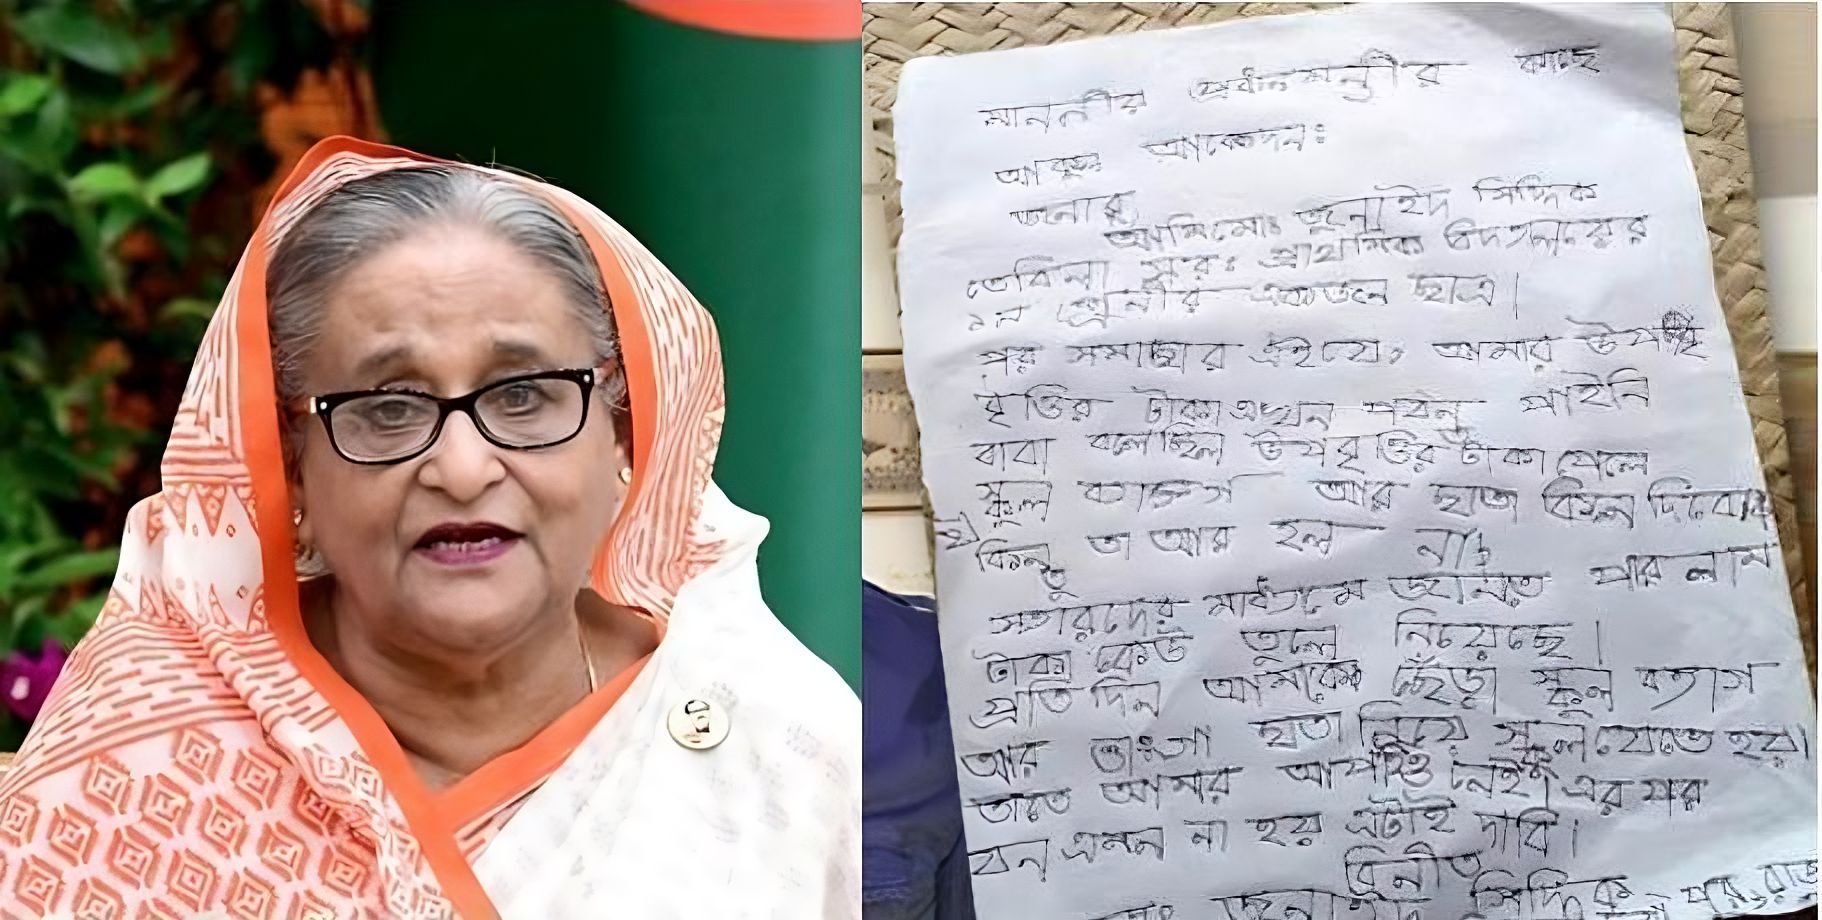 মাননীয় প্রধানমন্ত্রীর কাছে
আকুল আবেদন:
জনাব
আমি মো: জুনাইদ সিদ্দিক
তেবিলা সর: প্রাথমিক বিদ্যালয়ের
১ম শ্রেনীর একজন ছাত্র।
পর সমাচার এই যে, আমার উপ
বৃত্তির টাকা এখন পাইনি
বাবা বলেছিল উপবৃত্তির টাকা পেলে
স্কুল ব্যাগ আর ছাতা কিনে
কিন্তু তা আর হল না।
স্যারদের মাধ্যমে জানতে পারলাম
টাকা কেউ তুলে নিয়েছে।
প্রতি দিন আমাকে ছিঁড়া স্কুল ব্যাগ
আর ভাংগা ছাতা নিয়ে স্কুলে যেতে হয়।
তাতে আমার আপত্তি নেই। এর পর
যেন এমন না হয় এটাই দাবি।
বিনীত
মো: জুনাইদ সিদ্দিক